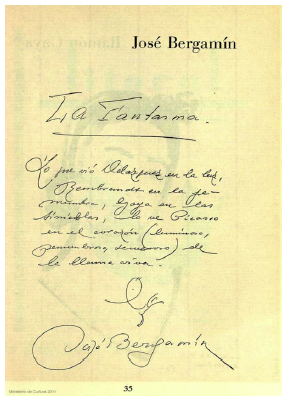 José Bergamín
La Fantasma.
Lo que vió Velázquez en la luz,
Rembrandt en la pe-
numbra, Goya en las
tinieblas, lo ve Picasso
en el corazón (luminoso,
penumbroso, tenebroso) de
la llama viva.
José Bergamín
35
Ministerio de Cultura 2011